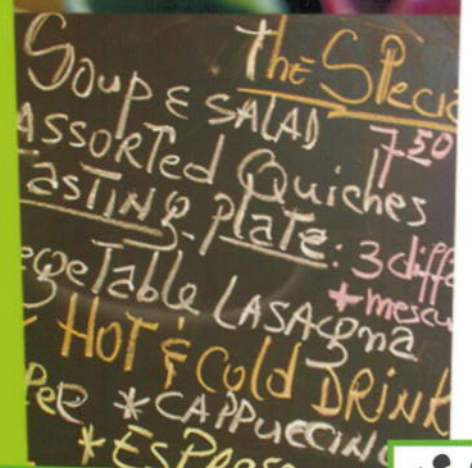 The Specia
Soup & SALAD 7.50
ASSORTED Quiches
TASTING PLATE: 3 diffe
egeTable LASAgna + mescu
HOT & Cold DRINK
PeR * CAPPUCCINO
* ESPRess